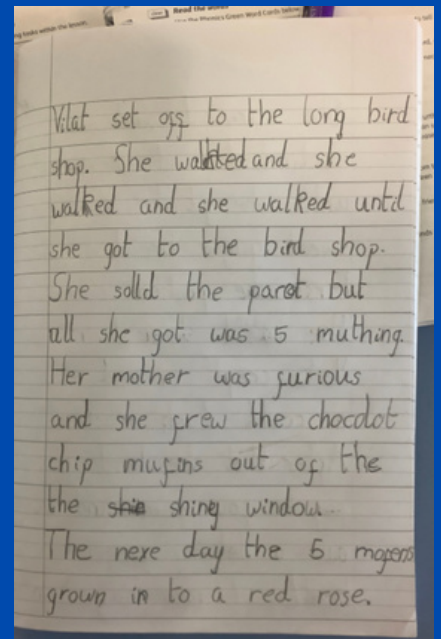 Read the words
Use the Phonics Green Word Cards below
Vilat set off to the long bird
shop. She walked and she
walked and she walked until
she got to the bird shop.
She solld the parot but
all she got was 5 muthing.
Her mother was furious
and she frew the chocolot
chip mufins out of the
the shin shing window.
The nexe day the 5 mofens
grown in to a red rose.